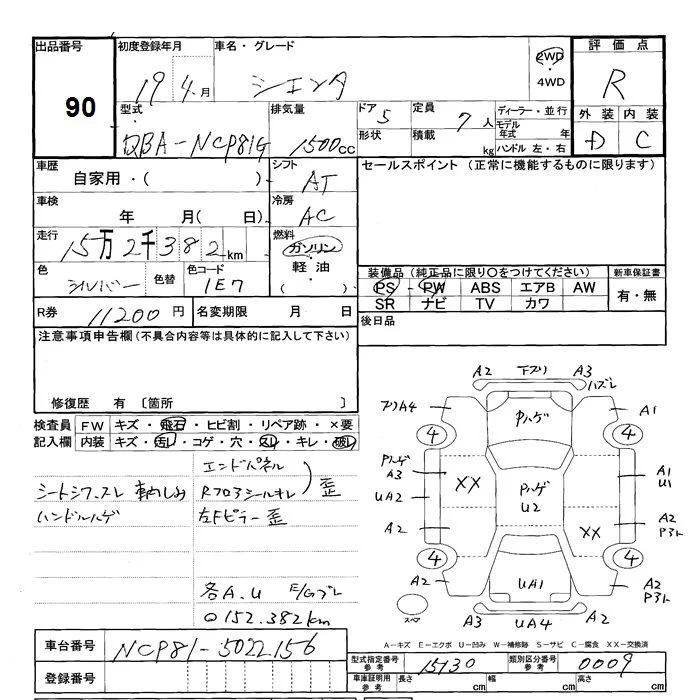 出品番号
90
初度登録年月
19 年 4 月
車名・グレード
シエンタ
2WD
・
4WD
評価点
R
外装 内装
D C
型式
DBA-NCP81G
排気量
1500cc
ドア 5
形状
定員 7 人
積載 kg
ディーラー・並行
モデル年式 年
ハンドル 左・右
車歴
自家用・( )
シフト
AT
セールスポイント (正常に機能するものに限ります)
車検
年 月( 日)
冷房
AC
走行
15万2千382km
燃料
ガソリン
・
軽油
( )
色
シルバー
色替
色コード
1E7
装備品 (純正品に限り〇をつけてください)
PS PW ABS エアB AW
SR ナビ TV カワ
新車保証書
有・無
R券 11200円
名変期限 月 日
後日品
注意事項申告欄(不具合内容等は具体的に記入して下さい)
修復歴 有 〔箇所 〕
検査員記入欄
FW キズ・飛石・ヒビ割・リペア跡・×要
内装 キズ・汚レ・コゲ・穴・スレ・キレ・破レ
エンドパネル
シートシワ,スレ 車内しみ
Rフロアシールキレ
歪
ハンドルハゲ
左Fピラー歪
各A.U E/Gブレ
〇152.382km
A2 下ズリ A3
ハズレ
A4
A1
4 4
Pハゲ
Pハゲ
A3
UA2
XX
Pハゲ
U2
A1
U1
A2
XX
A2
P3ト
4 4
A2
UA1
A2
P3ト
スペア
A3 UA4 A2
車台番号 NCP81-5022156
登録番号
A－キズ E－エクボ U－凹み W－補修跡 S－サビ C－腐食 XX－交換済
型式指定番号
参考
15130
類別区分番号
参考
0009
車庫証明用
参考
長さ cm 幅 cm 高さ cm